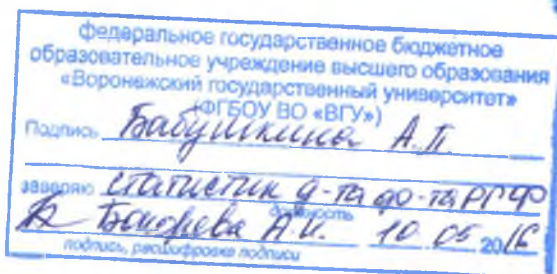 федеральное государственное бюджетное
образовательное учреждение высшего образования
«Воронежский государственный университет»
(ФГБОУ ВО «ВГУ»)
Подпись Бабушкина А.П.
заверяю статистик
должность
А.И. 10 05 2016
подпись, расшифровка подписи